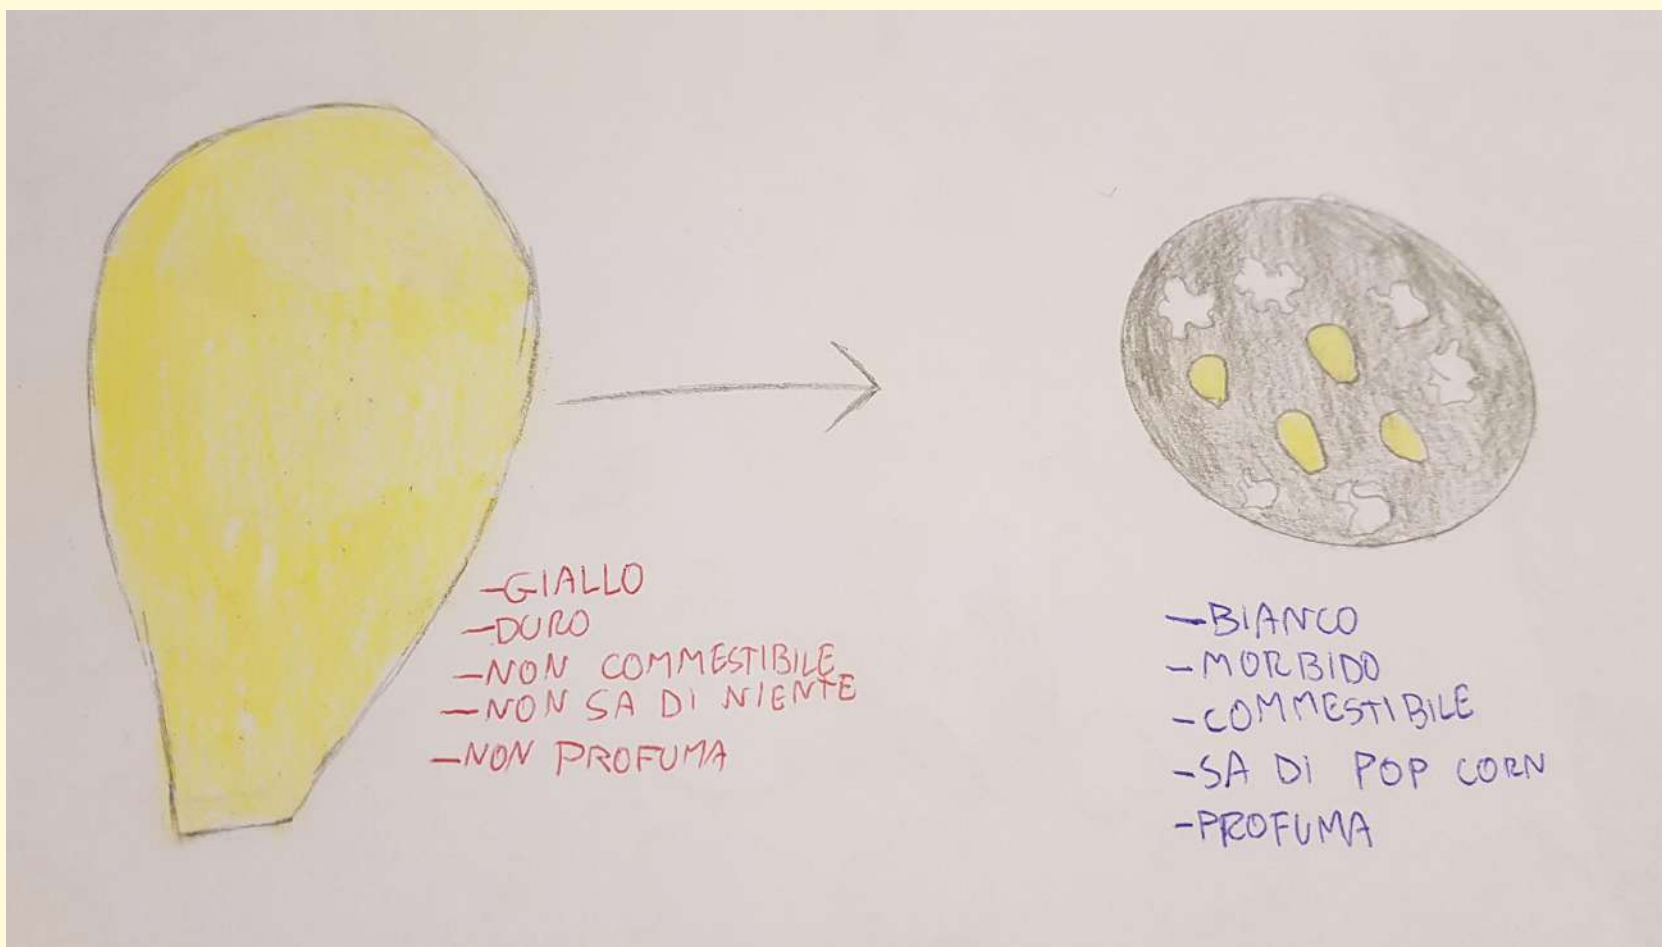 -GIALLO
-DURO
-NON COMMESTIBILE
-NON SA DI NIENTE
-NON PROFUMA
-BIANCO
-MORBIDO
-COMMESTIBILE
-SA DI POP CORN
-PROFUMA